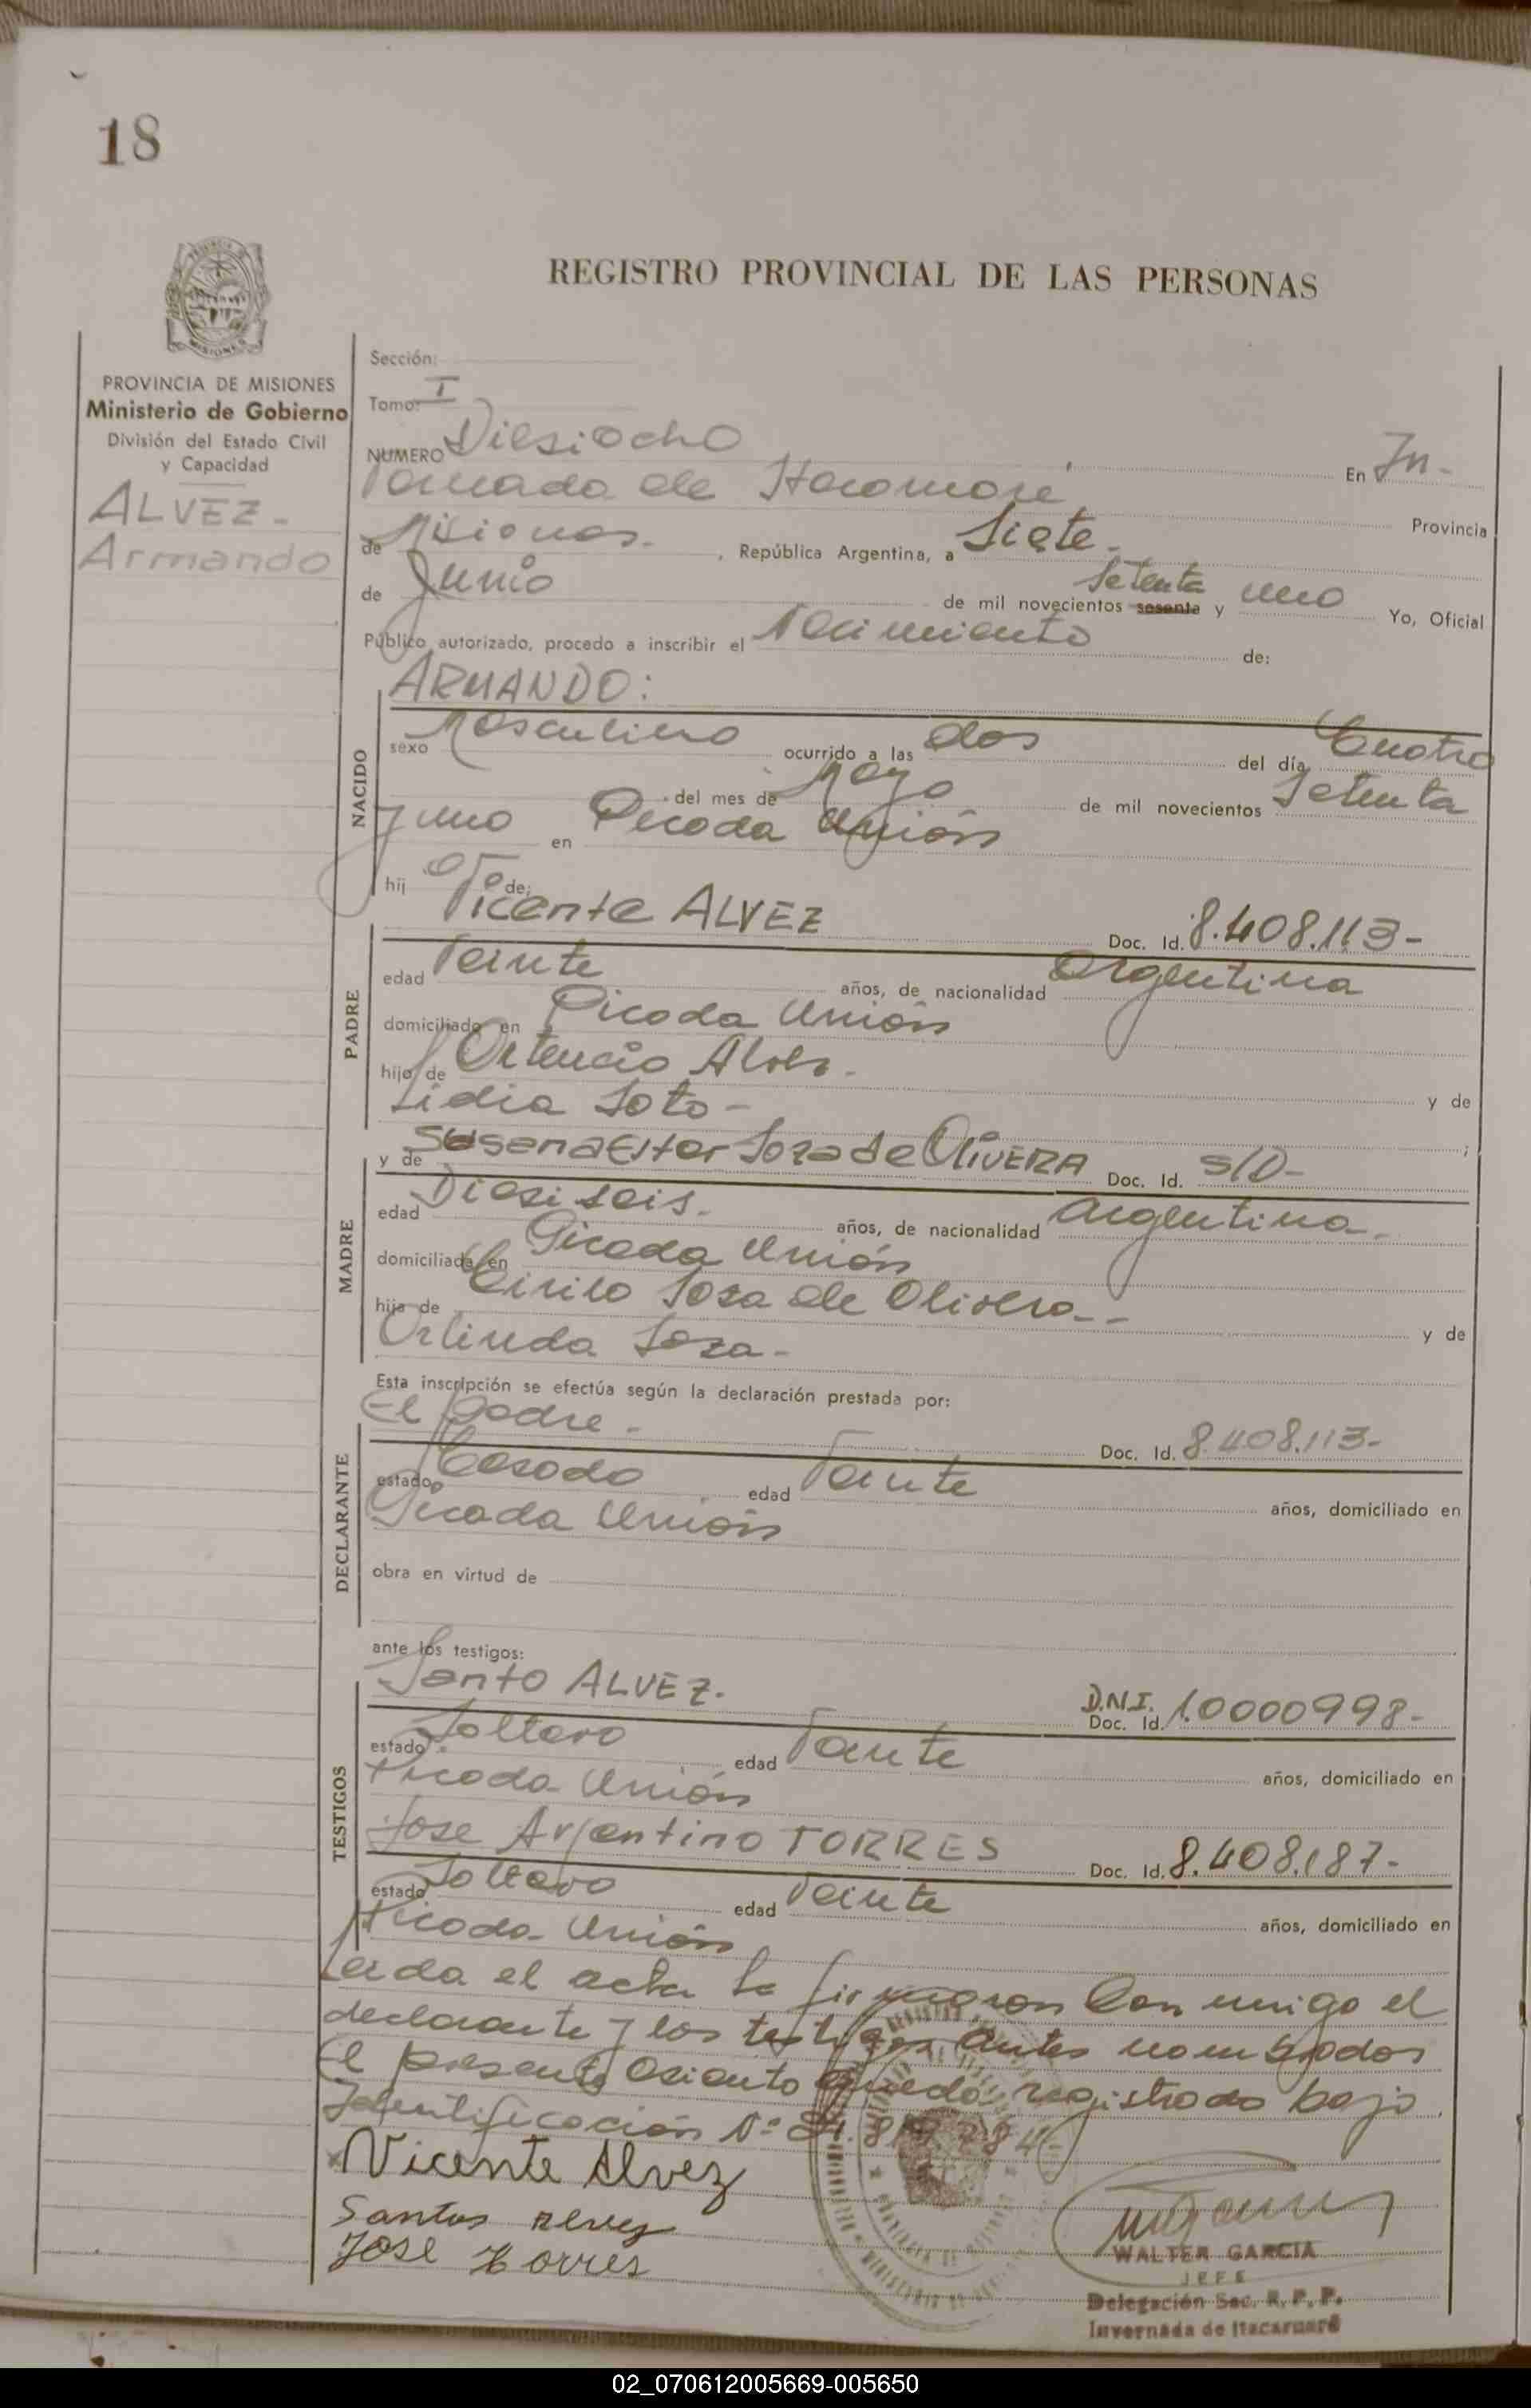 18
REGISTRO PROVINCIAL DE LAS PERSONAS
MISIONES
PROVINCIA DE MISIONES
Ministerio de Gobierno
División del Estado Civil
y Capacidad
ALVEZ -
Armando
Sección:
Tomo: I
NUMERO Diesiocho En In-
vernada de Itacaruaré Provincia
de Misiones. , República Argentina, a Siete -
de Junio de mil novecientos sesenta Setenta y uno Yo, Oficial
Público autorizado, procedo a inscribir el Nacimiento de:
NACIDO
ARMANDO:
sexo Masculino ocurrido a las dos del día Cuatro
del mes de Mayo de mil novecientos Setenta
y uno en Picada Unión
hij o de:
PADRE
Vicente ALVEZ Doc. Id. 8.408.113-
edad Veinte años, de nacionalidad Argentina
domiciliado en Picada Unión
hijo de Ortencio Alves - y de
Lidia Soto - ;
MADRE
y de Susana Ester Soza de OliVERA Doc. Id. S/D-
edad Diesiseis. años, de nacionalidad Argentina -
domiciliada en Picada Unión
hija de Cirilo Soza de Olivera -- y de
Orlinda Soza -
Esta inscripción se efectúa según la declaración prestada por:
DECLARANTE
El padre - Doc. Id. 8.408.113-
estado Casado edad Veinte años, domiciliado en
Picada Unión
obra en virtud de
ante los testigos:
TESTIGOS
Santo ALVEZ. D.N.I. Doc. Id. 10000998-
estado Soltero edad Veinte años, domiciliado en
Picada Unión
Jose Argentino TORRES Doc. Id. 8.408.187-
estado Soltero edad Veinte años, domiciliado en
Picada Unión
Leida el acta la firmaron Con migo el
declarante y los testigos antes nombrados
El presente asiento quedó registrado bajo
Identificación Nº
Vicente Alvez
Santos Alvez
Jose Torres
WALTER GARCIA
JEFE
Delegación Sec. R. P. P.
Invernada de Itacaruaré
02_070612005669-005650